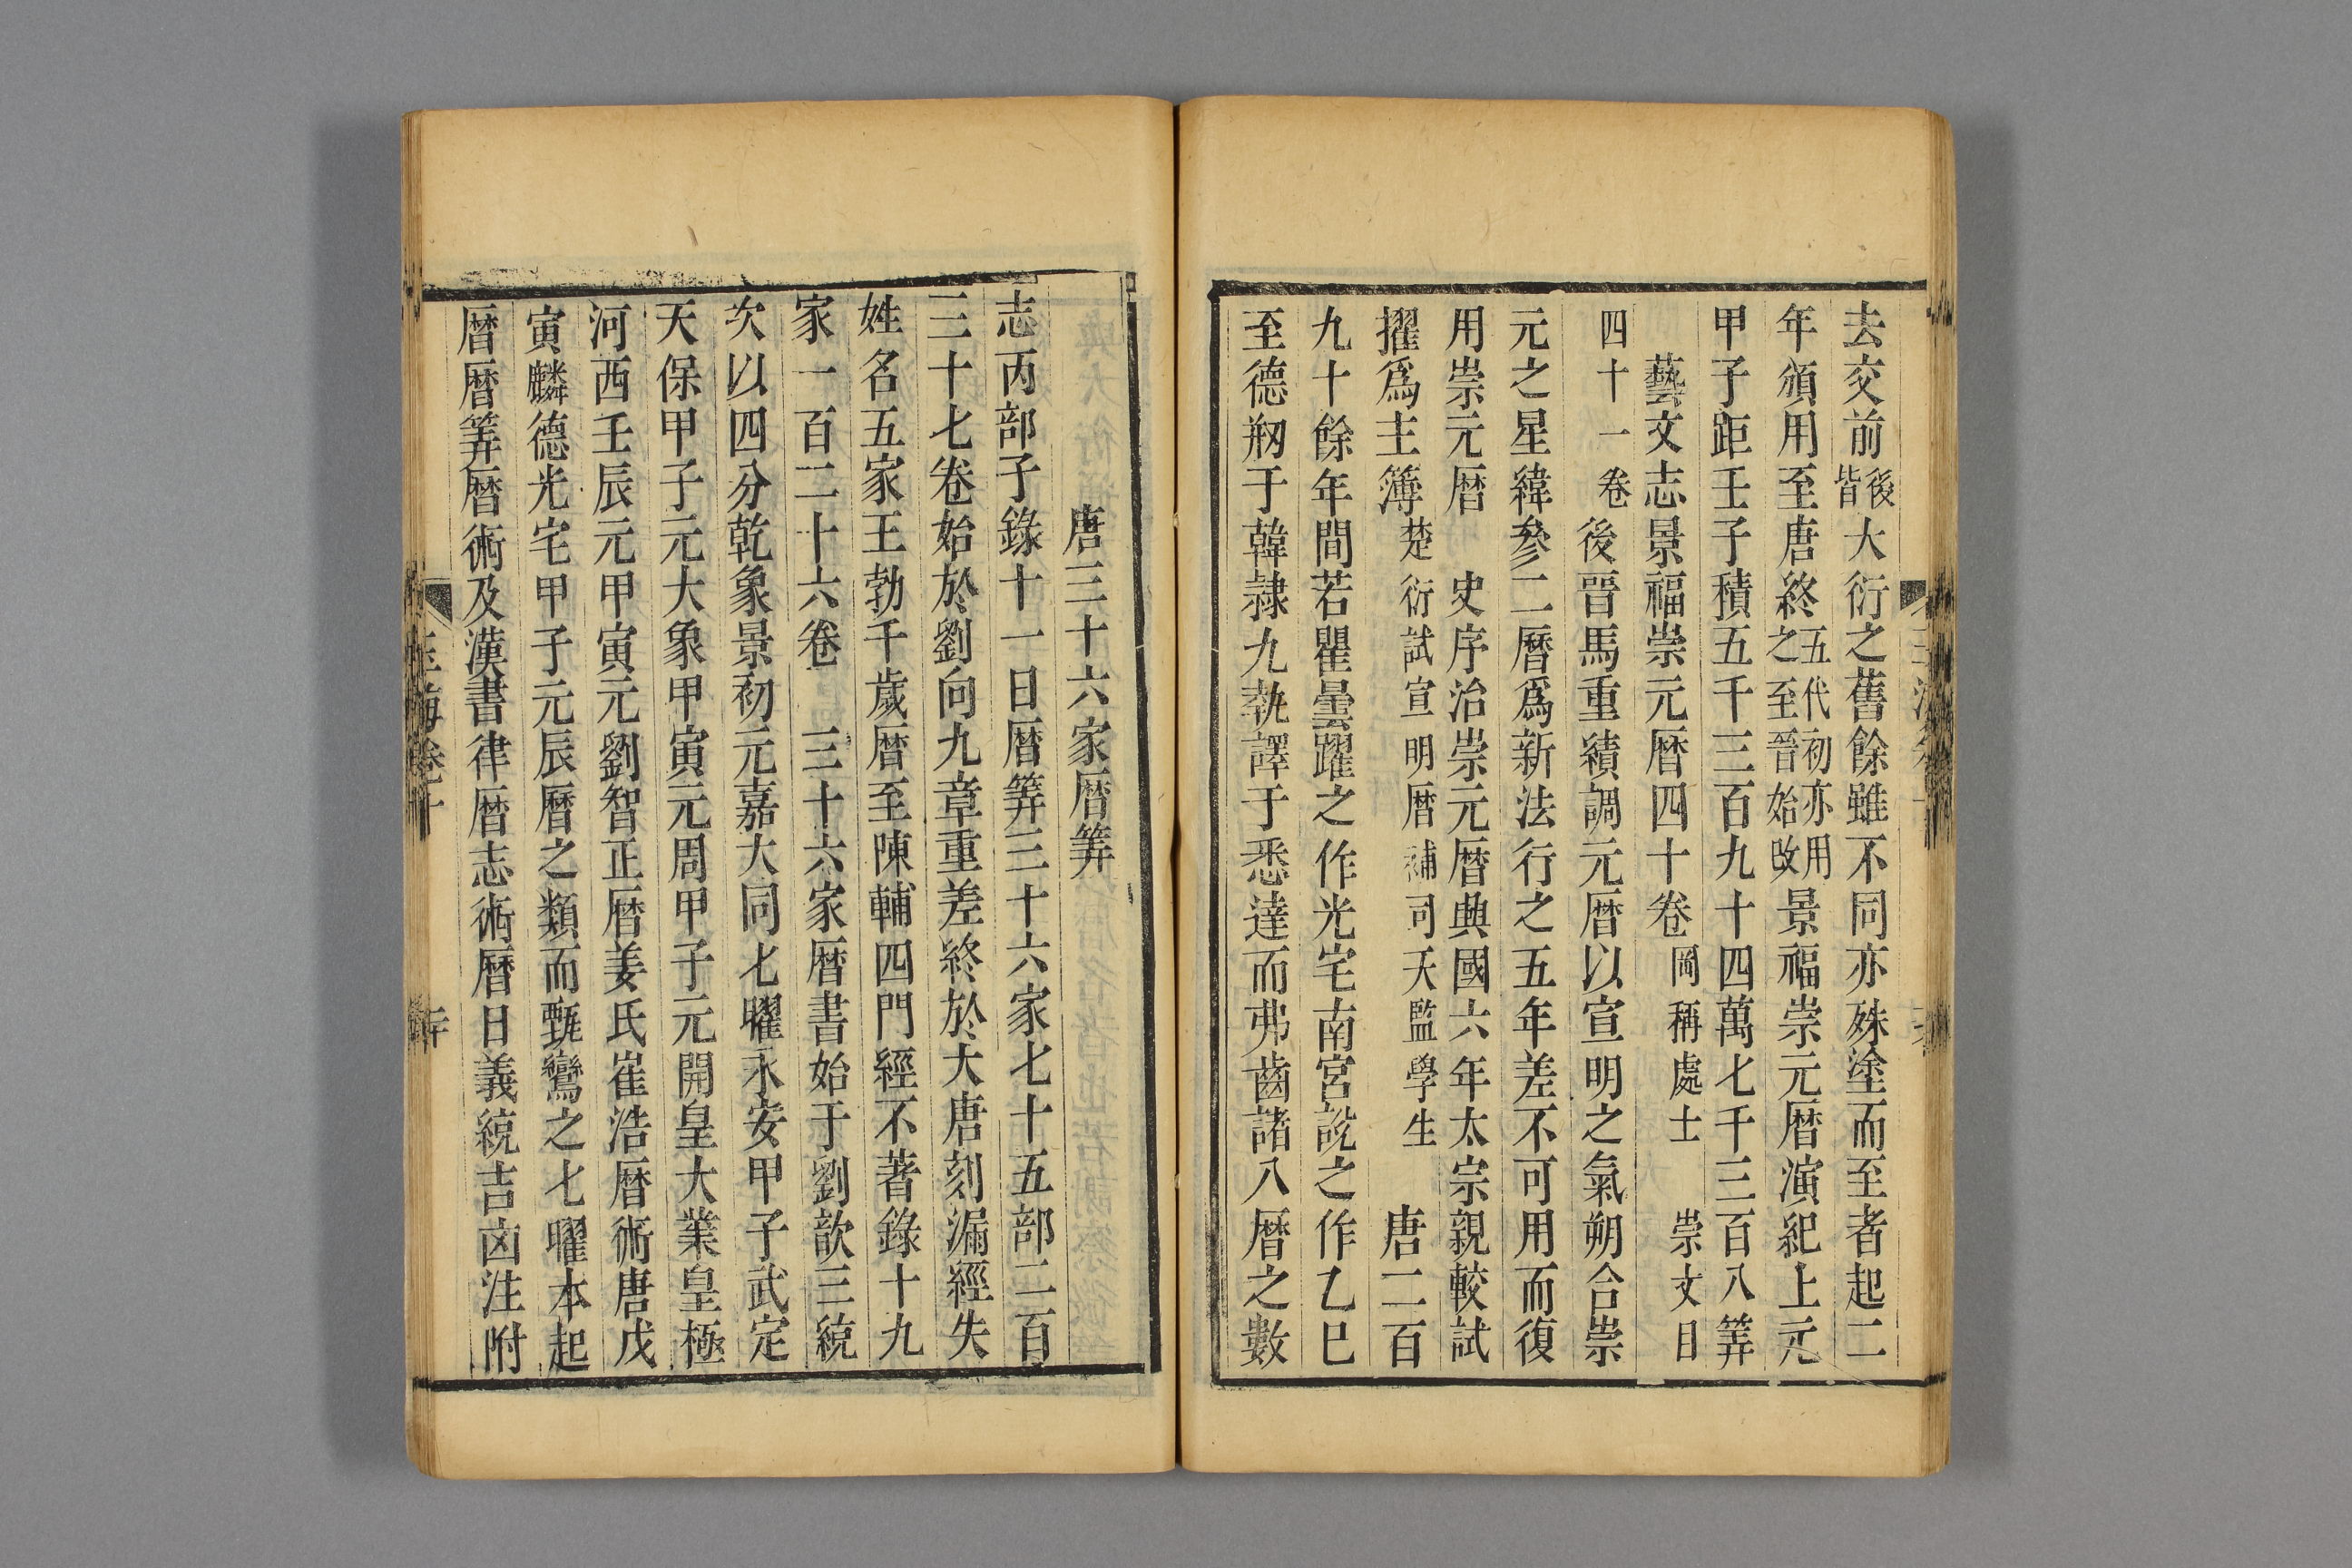 去交前後皆大衍之舊餘雖不同亦殊塗而至者起二
年頒用至唐終五代初亦用之至晉始改景福崇元曆演紀上元
甲子距壬子積五千三百九十四萬七千三百八筭
藝文志景福崇元曆四十卷岡稱處士崇文目
四十一卷後晉馬重績調元曆以宣明之氣朔合崇
元之星緯參二曆爲新法行之五年差不可用而復
用崇元曆史序治崇元曆典國六年太宗親較試
擢爲主簿楚衍試宣明曆補司天監學生唐二百
九十餘年間若瞿曇躍之作光宅南宮說之作乙巳
至德剏于韓隷九執譯于悉達而弗齒諸八曆之數
唐三十六家曆筭
志丙部子錄十一日曆筭三十六家七十五部二百
三十七卷始於劉向九章重差終於大唐刻漏經失
姓名五家王勃千歲曆至陳輔四門經不著錄十九
家一百二十六卷三十六家曆書始于劉歆三統
次以四分乾象景初元嘉大同七曜永安甲子武定
天保甲子元大象甲寅元周甲子元開皇大業皇極
河西壬辰元甲寅元劉智正曆姜氏崔浩曆術唐戊
寅麟德光宅甲子元辰曆之類而甄鸞之七曜本起
曆曆筭曆術及漢書律曆志術曆日義統吉凶注附
玉海卷十